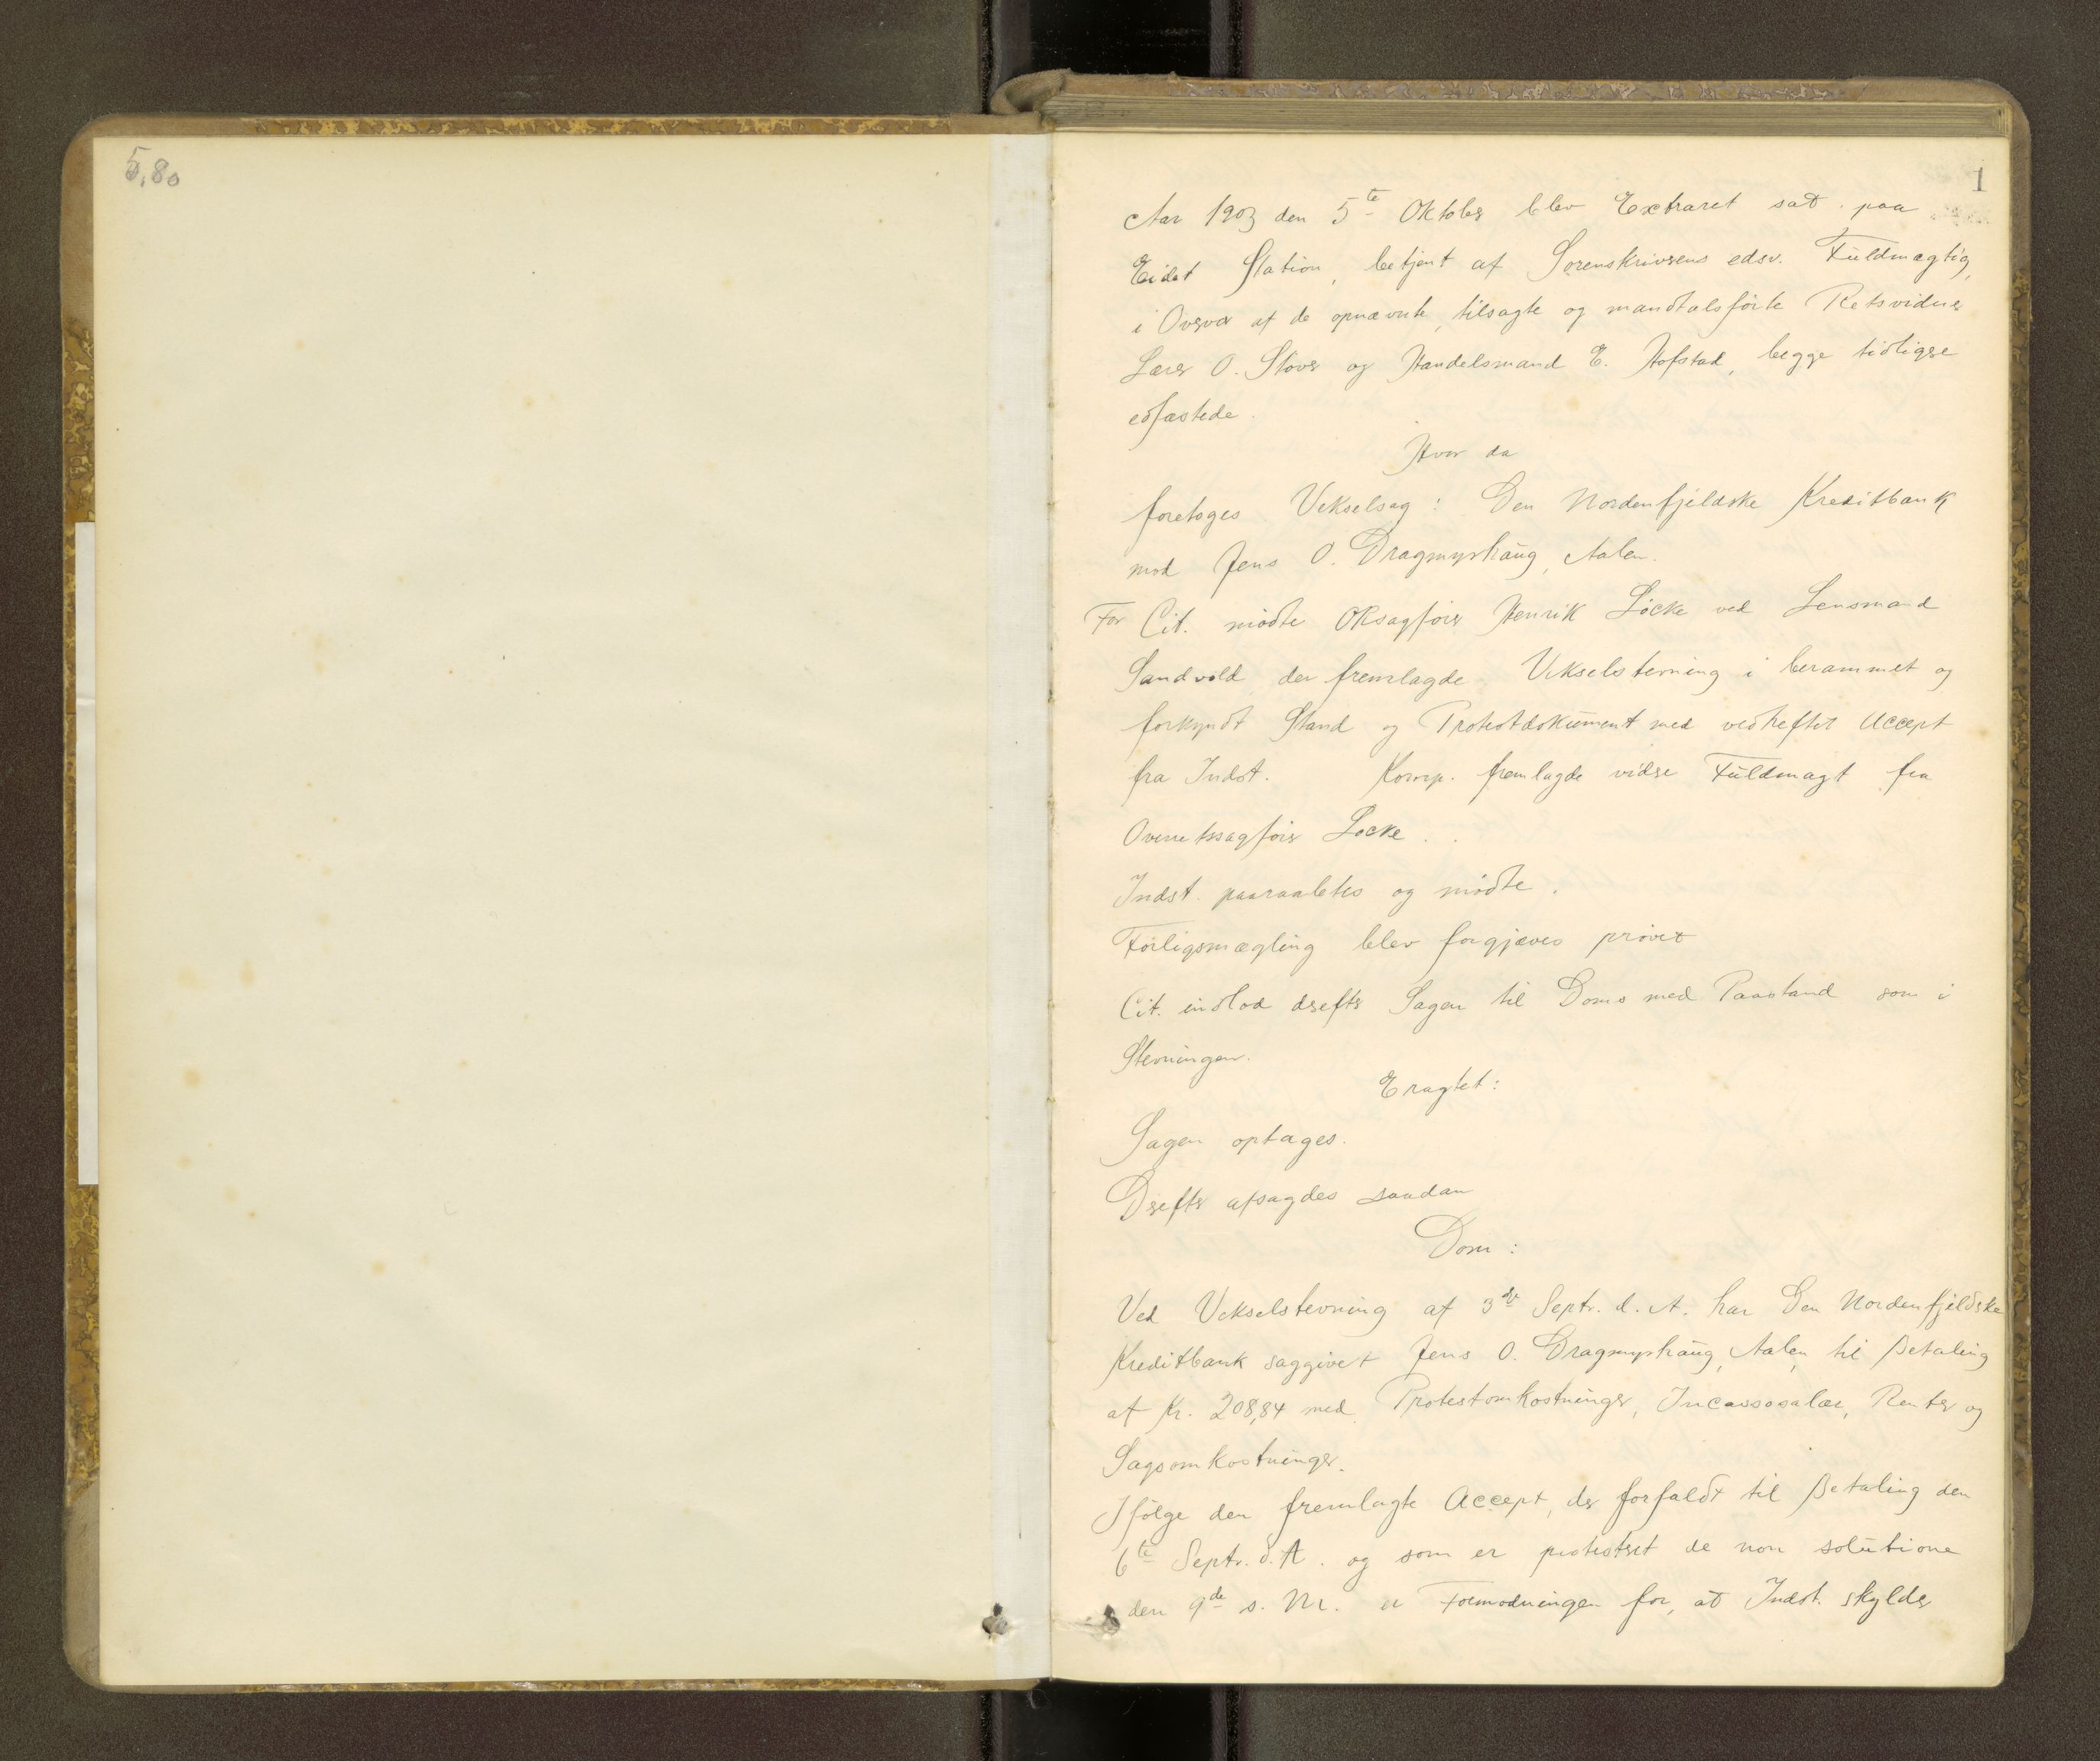 5,80
1
Aar 1903 den 5te Oktober blev Extraret sat paa
Eidet Station, betjent af Sorenskriverens edsv. Fuldmægtig,
i Overvær af de opnævnte, tilsagte og mandtalsførte Retsvidner
Lærer O. Støver og Handelsmand E. Hofstad, begge tidligere
edfæstede.
Hvor da
foretoges Vekselsag: Den Nordenfjeldske Kreditbank
mod Jens O. Dragmyrhaug, Aalen.
For Cit. mødte ORsagfører Henrik Löcke ved Lensmand
Sandvold der fremlagde Vekselstevning i berammet og
forkyndt Stand og Protestdokument med vedheftet Accept
fra Indst. Komp. fremlagde videre Fuldmagt fra
Overretssagfører Locke.
Indst. paaraabtes og mødte.
Forligsmægling blev forgjæves prøvet
Cit. indlod derefter Sagen til Doms med Paastand som i
Stevningen.
Eragtet:
Sagen optages.
Derefter afsagdes saadan
Dom:
Ved Vekselstevning af 3de Septr. d. A. har Den Nordenfjeldske
Kreditbank saggivet Jens O. Dragmyrhaug, Aalen, til Betaling
af Kr. 208,84 med Protestomkostninger, Incassosalær, Renter og
Sagsomkostninger.
Ifølge den fremlagte Accept, der forfaldt til Betaling den
6te Septr. d. A. og som er protesteret de non solutione
den 9de s. M. er Formodningen for, at Indst. skylder